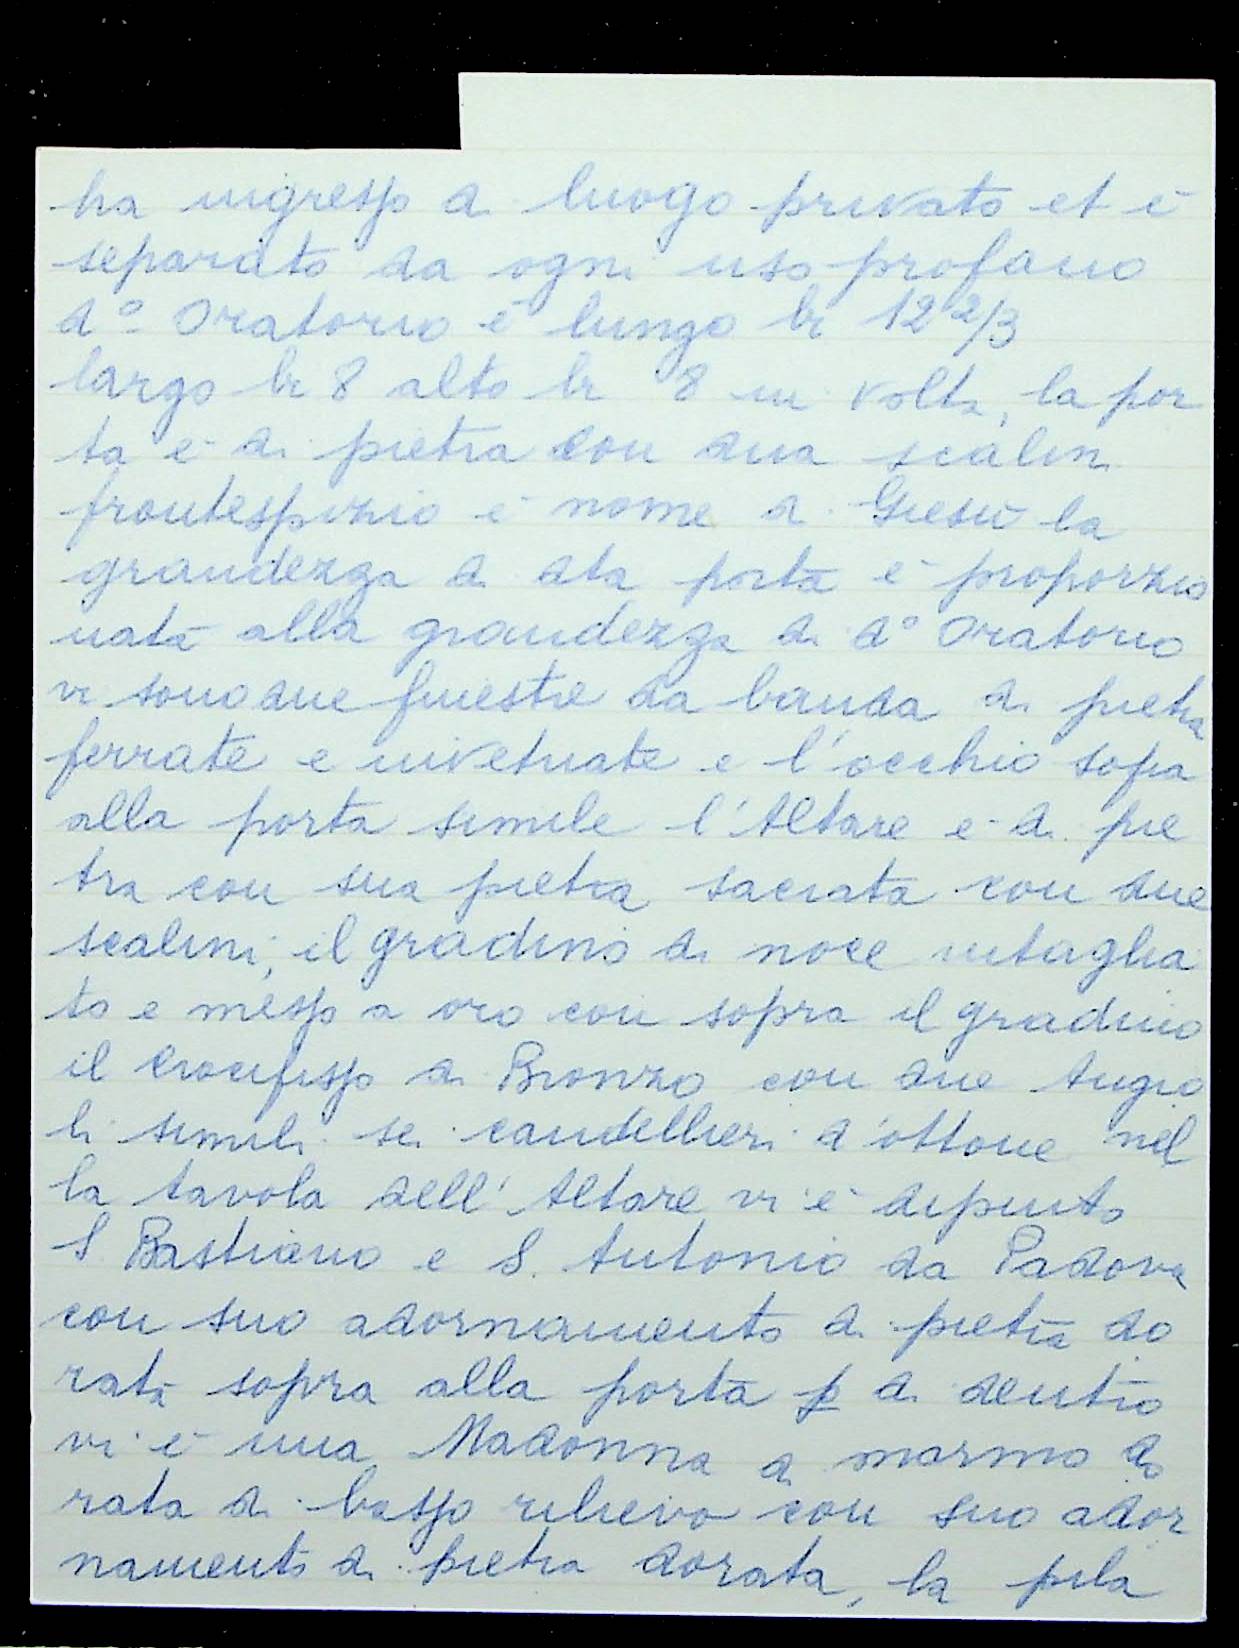 ha ingresso a luogo privato et è
separato da ogni uso profano
d° Oratorio è lungo br 12 2/3
largo br 8 alto br 8 in volta, la por
ta è di pietra con dua scalin
frontespizio e nome di Giesù la
grandezza di dta porta è proporzio
nata alla grandezza di d° Oratorio
vi sono due finestre da banda di pietra
ferrate e invetriate e l'occhio sopra
alla porta simile l'Altare è di pie
tra con sua pietra sacrata con due
scalini, il gradino di noce intaglia
to e messo a oro con sopra il gradino
il Crocifisso di Bronzo con due Angio
li simili sei candellieri d'ottone nel
la tavola dell'Altare vi è dipinto
S Bastiano e S. Antonio da Padova
con suo adornamento di pietra do
rata sopra alla porta p di dentro
vi è una Madonna di marmo do
rata di basso rilievo con suo ador
namento di pietra dorata, la pila